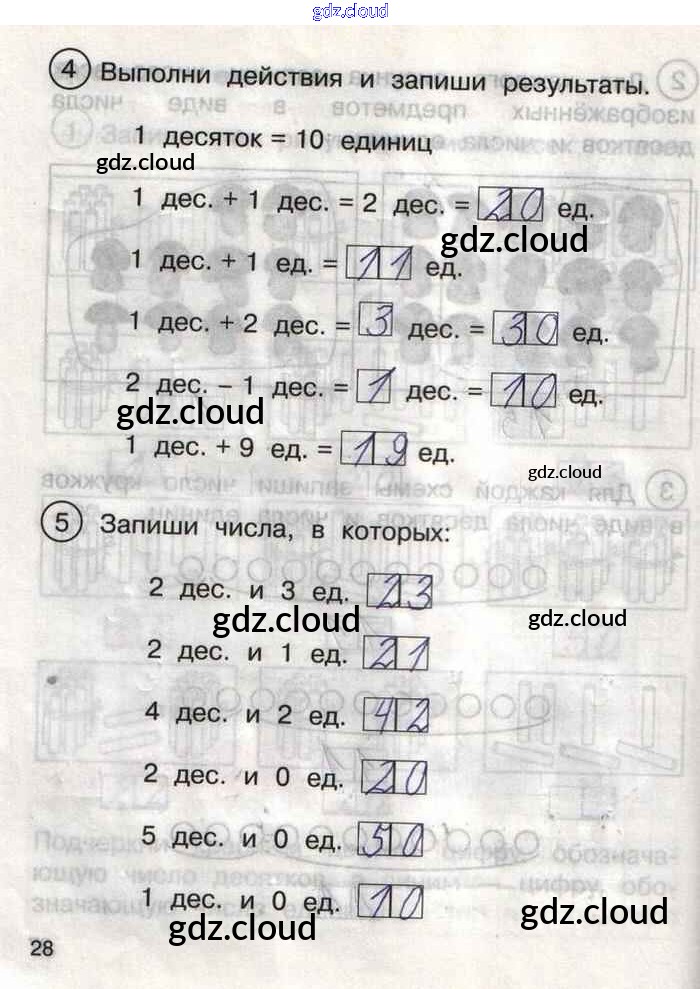 gdz.cloud
4 Выполни действия и запиши результаты.
1 десяток = 10 единиц
gdz.cloud
1 дес. + 1 дес. = 2 дес. = 20 ед.
gdz.cloud
1 дес. + 1 ед. = 11 ед.
1 дес. + 2 дес. = 3 дес. = 30 ед.
2 дес. – 1 дес. = 1 дес. = 10 ед.
gdz.cloud
1 дес. + 9 ед. = 19 ед.
gdz.cloud
5 Запиши числа, в которых:
2 дес. и 3 ед. 23
gdz.cloud gdz.cloud
2 дес. и 1 ед. 21
4 дес. и 2 ед. 42
2 дес. и 0 ед. 20
5 дес. и 0 ед. 50
1 дес. и 0 ед. 10
gdz.cloud gdz.cloud
28